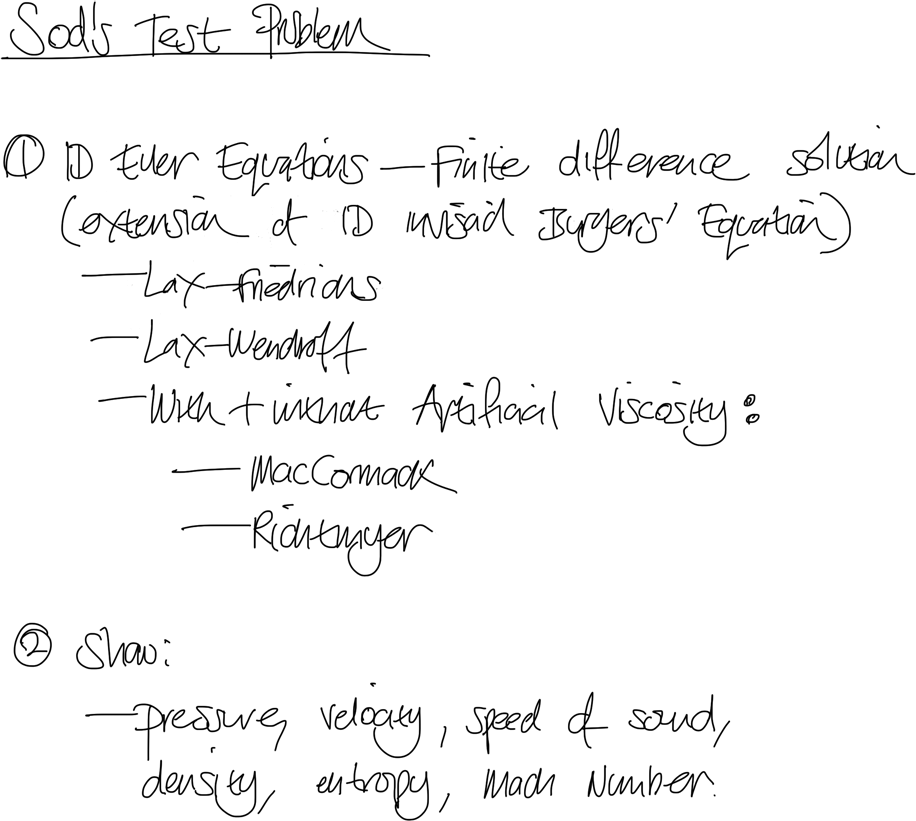 Sod's Test Problem
① 1D Euler Equations — Finite difference solution
(extension of 1D inviscid Burgers' Equation)
— Lax-Friedrichs
— Lax-Wendroff
— With + without Artificial Viscosity:
— MacCormack
— Richtmyer
② Show:
— pressure, velocity, speed of sound,
density, entropy, Mach Number.